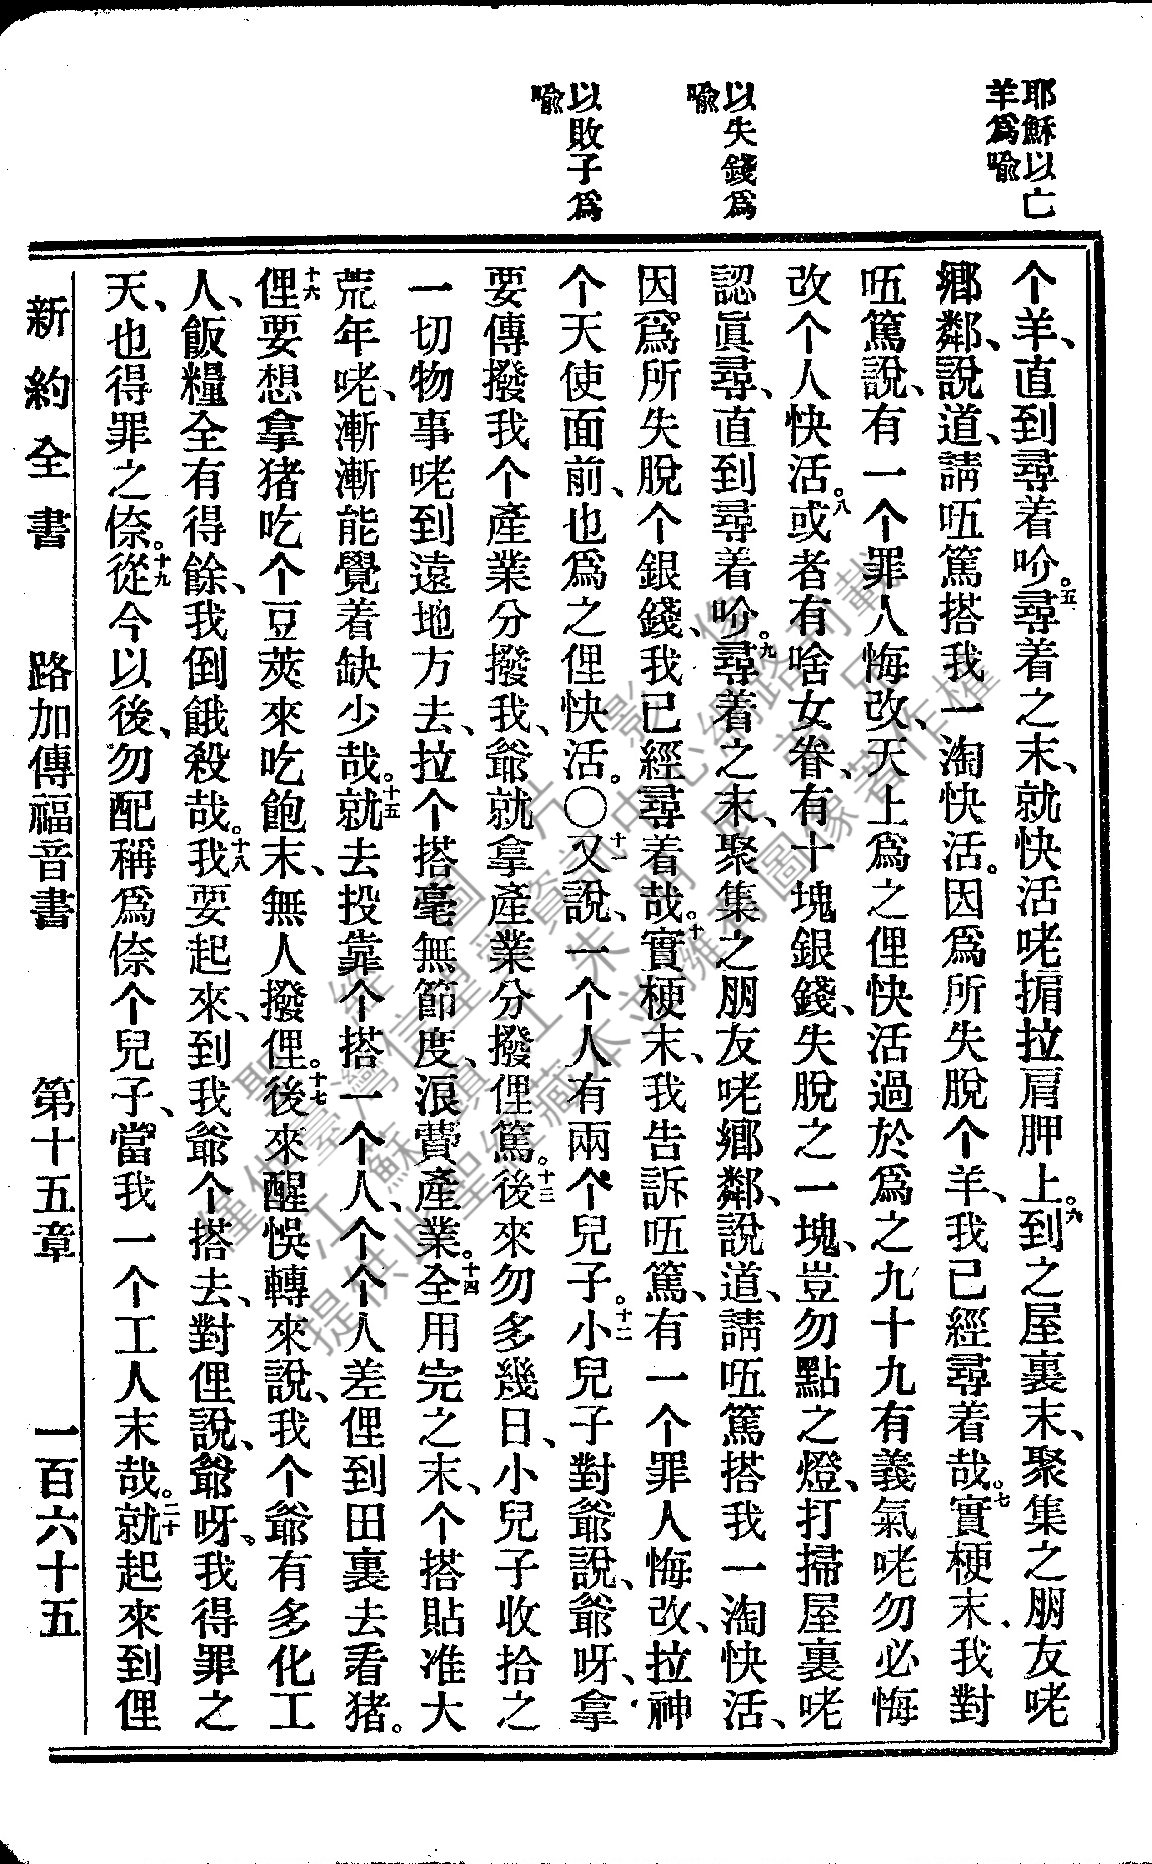 耶穌以亡
羊爲喻
以失錢爲
喻
以敗子爲
喻
个羊、直到尋着吤。五尋着之末、就快活咾掮拉肩胛上。六到之屋裏末、聚集之朋友咾
鄕鄰、說道、請㕶篤搭我一淘快活。因爲所失脫个羊、我已經尋着哉。七實梗末、我對
㕶篤說、有一个罪人悔改、天上爲之俚快活過於爲之九十九有義氣咾勿必悔
改个人快活。八或者有啥女眷、有十塊銀錢、失脫之一塊、豈勿點之燈、打掃屋裏咾
認眞尋、直到尋着吤。九尋着之末、聚集之朋友咾鄕鄰、說道、請㕶篤搭我一淘快活、
因爲所失脫个銀錢、我已經尋着哉。十實梗末、我告訴㕶篤、有一个罪人悔改、拉神
个天使面前、也爲之俚快活。〇十一又說、一个人有兩个兒子。十二小兒子對爺說、爺呀、拿
要傳撥我个產業分撥我、爺就拿產業分撥俚篤。十三後來勿多幾日、小兒子收拾之
一切物事咾到遠地方去、拉个搭毫無節度、浪費產業。十四全用完之末、个搭貼准大
荒年咾、漸漸能覺着缺少哉。十五就去投靠个搭一个人、个个人差俚到田裏去看猪。
十六俚要想拿猪吃个豆莢來吃飽末、無人撥俚。十七後來醒悞轉來說、我个爺有多化工
人、飯糧全有得餘、我倒餓殺哉。十八我要起來、到我爺个搭去、對俚說、爺呀、我得罪之
天、也得罪之倷。十九從今以後、勿配稱爲倷个兒子、當我一个工人末哉。二十就起來到俚
新約全書 路加傳福音書 第十五章 一百六十五
聖經圖片影像
僅供臺灣信望愛資訊中心網路刊載
江蘇鎮江朱明民
提供此聖經藏本並擁有圖像著作權